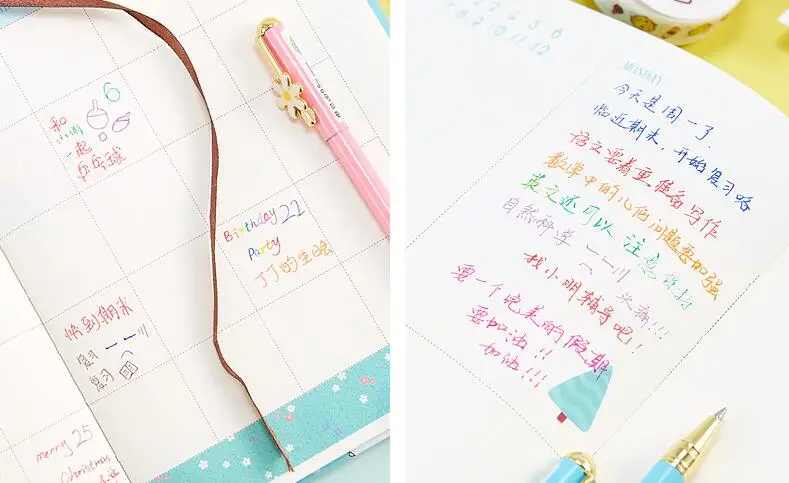 6
和
小明
一起
乒乓球
Birthday 22
Party
丁丁的生日
快到期末
复习
复习
merry 25
Christmas
7 8 9 10 11 12
MONDAY
今天是周一了.
临近期末，开始复习咯
语文要着重准备写作
数学中的几何问题要加强
英文还可以 注意保持
自然科学
头痛!!!
找小明辅导吧!
要一个完美的假期
要加油!!
加油!!!